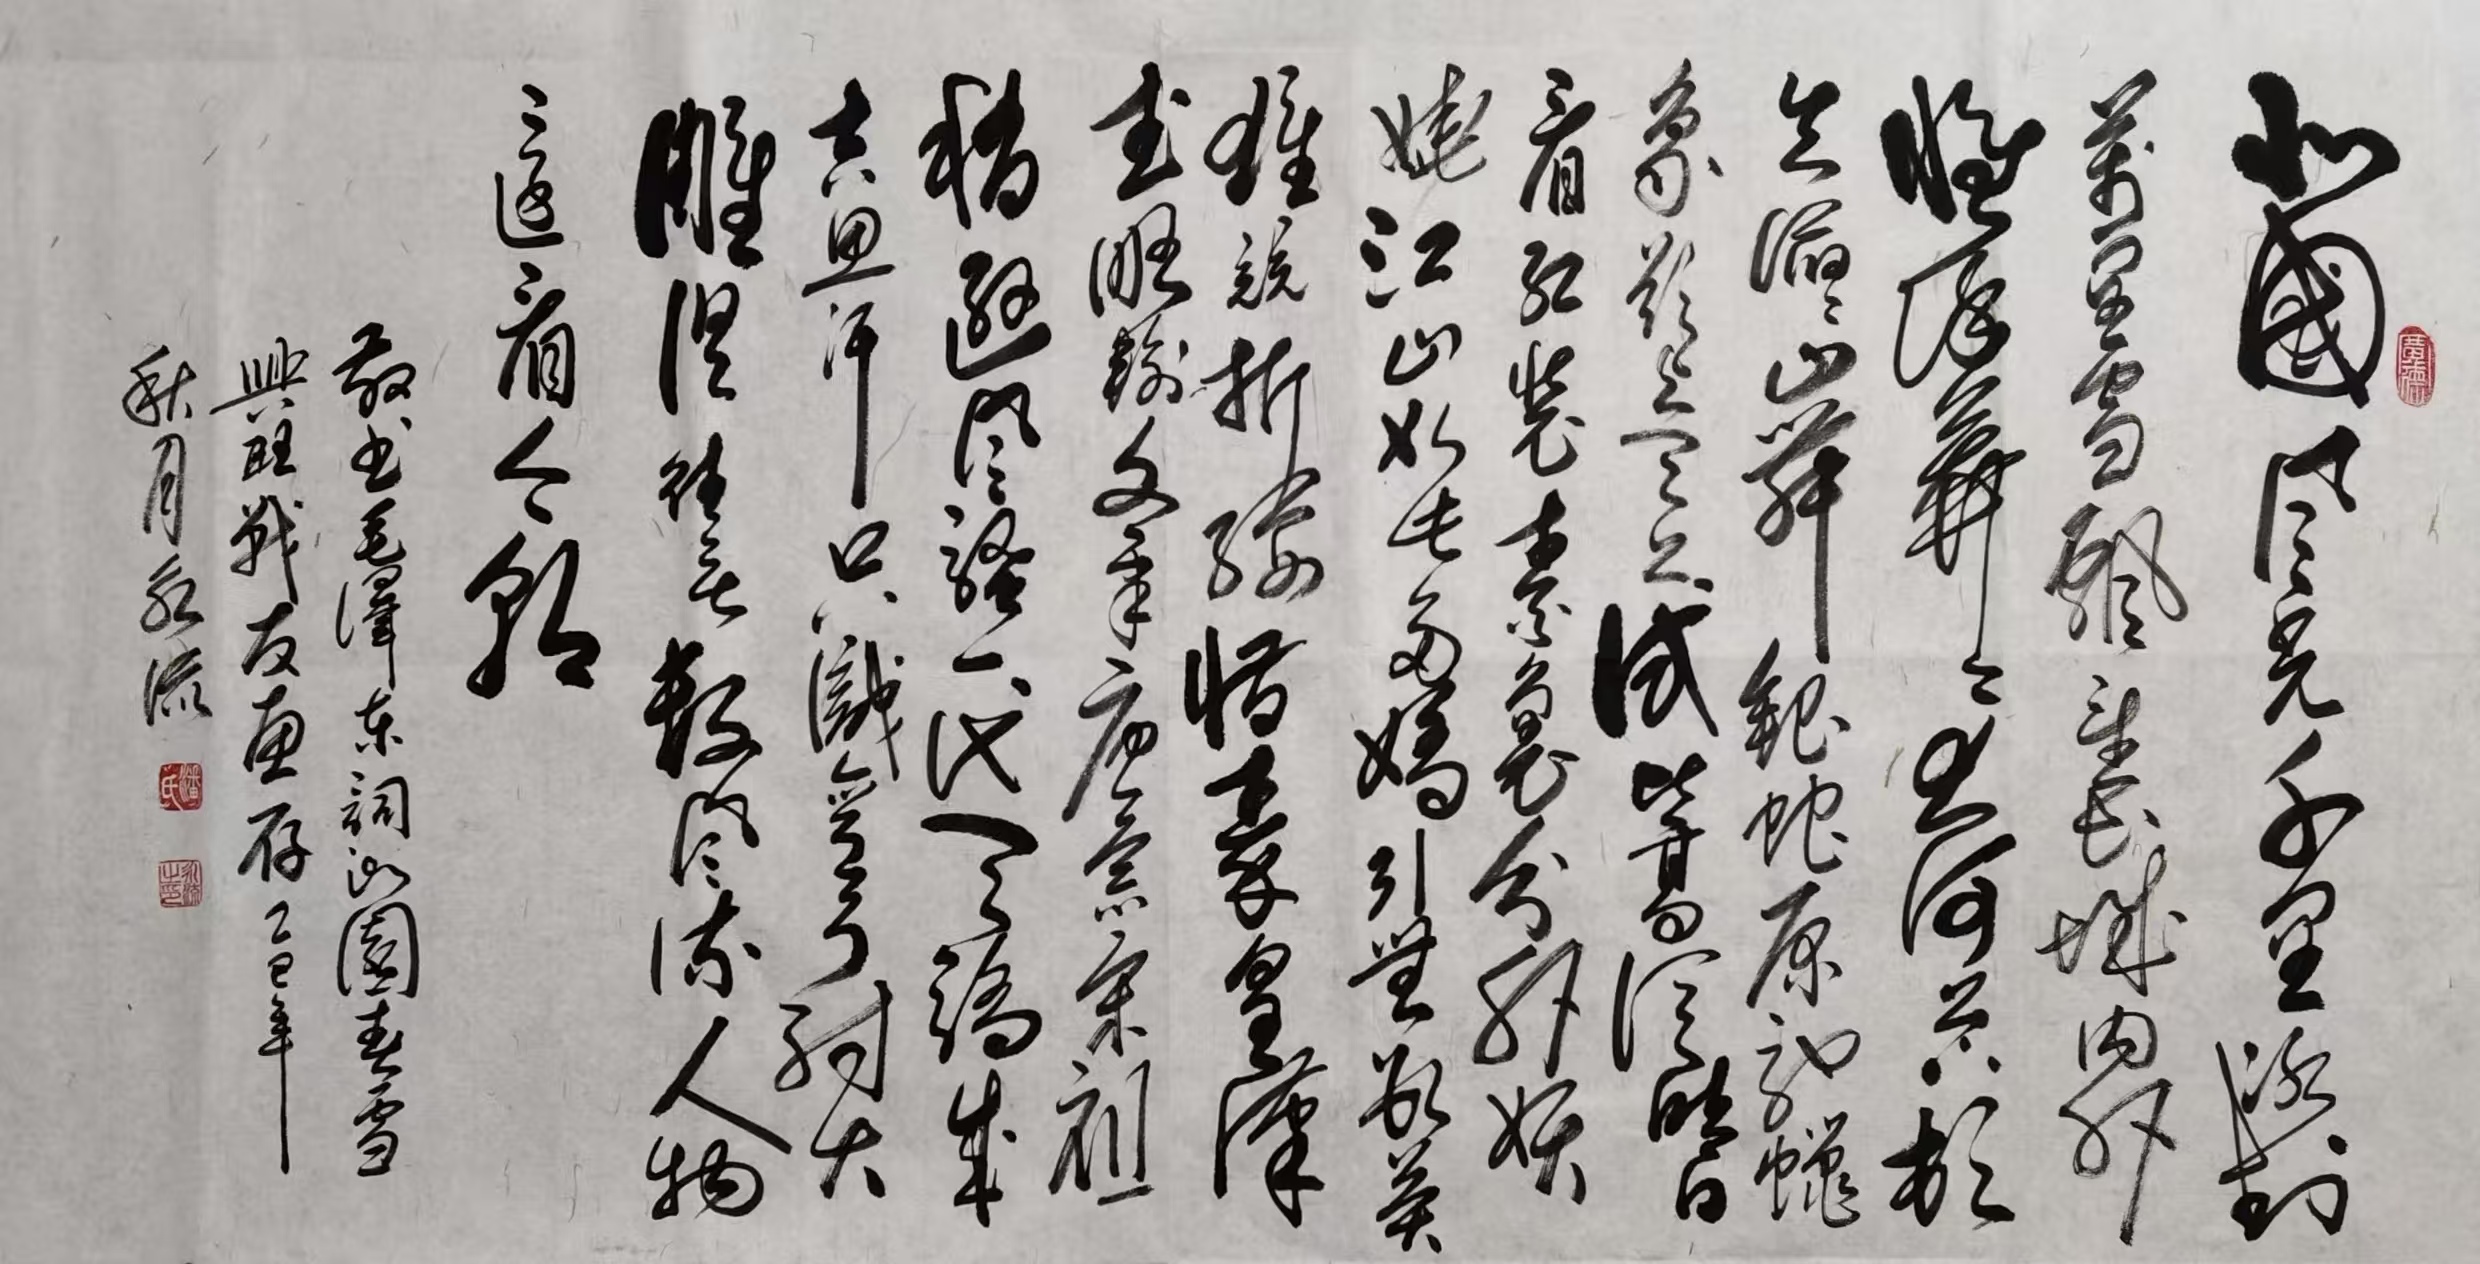 北國風光千里冰封
萬里雪飄望長城内外
惟餘莽〻大河上下頓
失滔〻山舞銀蛇原馳蠟
象欲與天公試比高須晴日
看紅裝素裹分外妖
嬈江山如此多嬌引無數英
雄競折腰惜秦皇漢
武略輸文采唐宗宋祖
稍遜風騷一代天驕成
吉思汗只識彎弓射大
雕俱往矣數風流人物
還看今朝
敬书毛澤东詞沁園春雪
興旺戰友惠存乙巳年
秋月永流
潘氏
永流之印